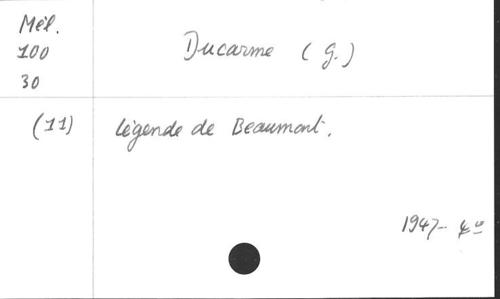 Mél.
100
30
Ducarme (G.)
(11)
légende de Beaumont.
1947- 4º